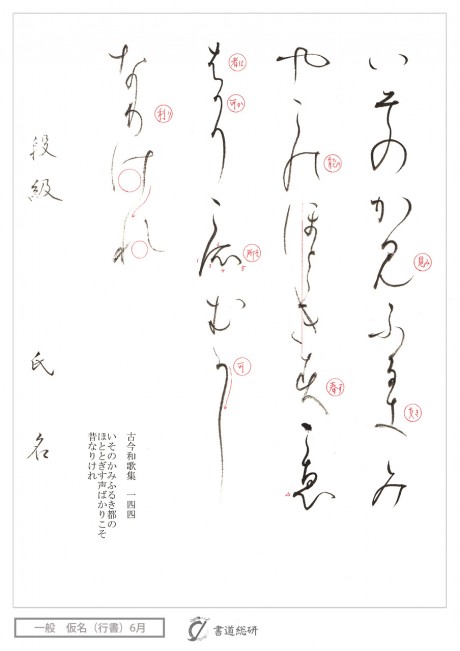 いそのか見ふる支み
やこ能ほとゝき春こ恵
者可りこ所む可し
な利けれ
段級 氏名
古今和歌集 一四四
いそのかみふるき都の
ほととぎす声ばかりこそ
昔なりけれ
一般 仮名（行書）6月
書道総研